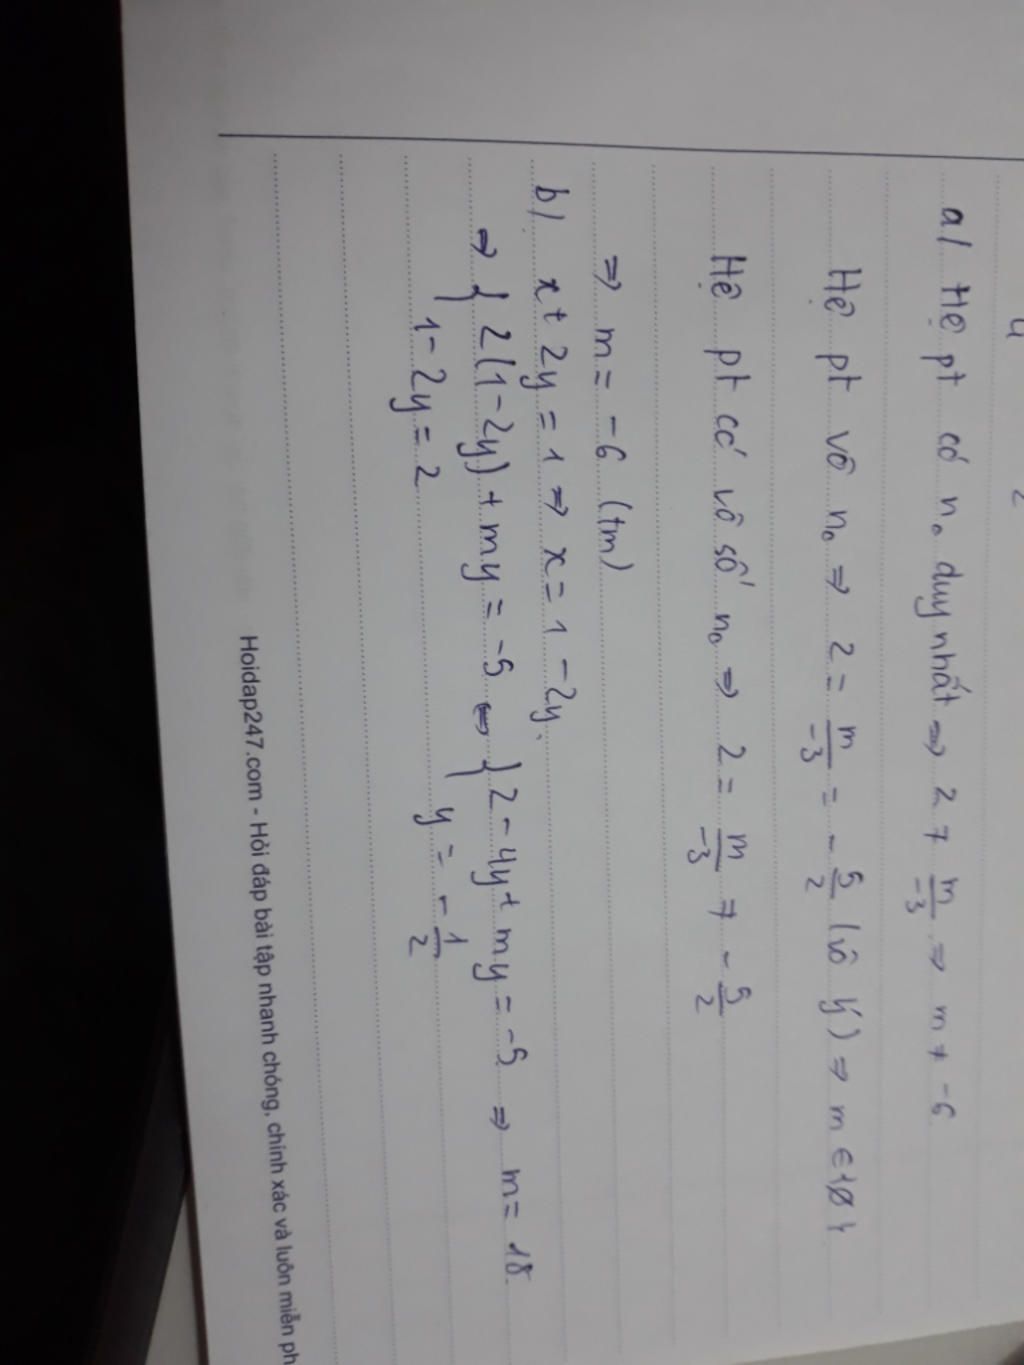 a) Hệ pt có n₀ duy nhất ⇒ 2 ≠ m/-3 ⇒ m ≠ -6
Hệ pt vô n₀ ⇒ 2 = m/-3 = -5/2 (vô ý) ⇒ m ∈ {Ø}
Hệ pt có vô số n₀ ⇒ 2 = m/-3 ≠ -5/2
⇒ m = -6 (tm)
b) x + 2y = 1 ⇒ x = 1 - 2y.
⇒ { 2(1-2y) + my = -5 ⇔ { 2 - 4y + my = -5 ⇒ m = 18
1 - 2y = 2 y = -1/2
Hoidap247.com - Hỏi đáp bài tập nhanh chóng, chính xác và luôn miễn ph